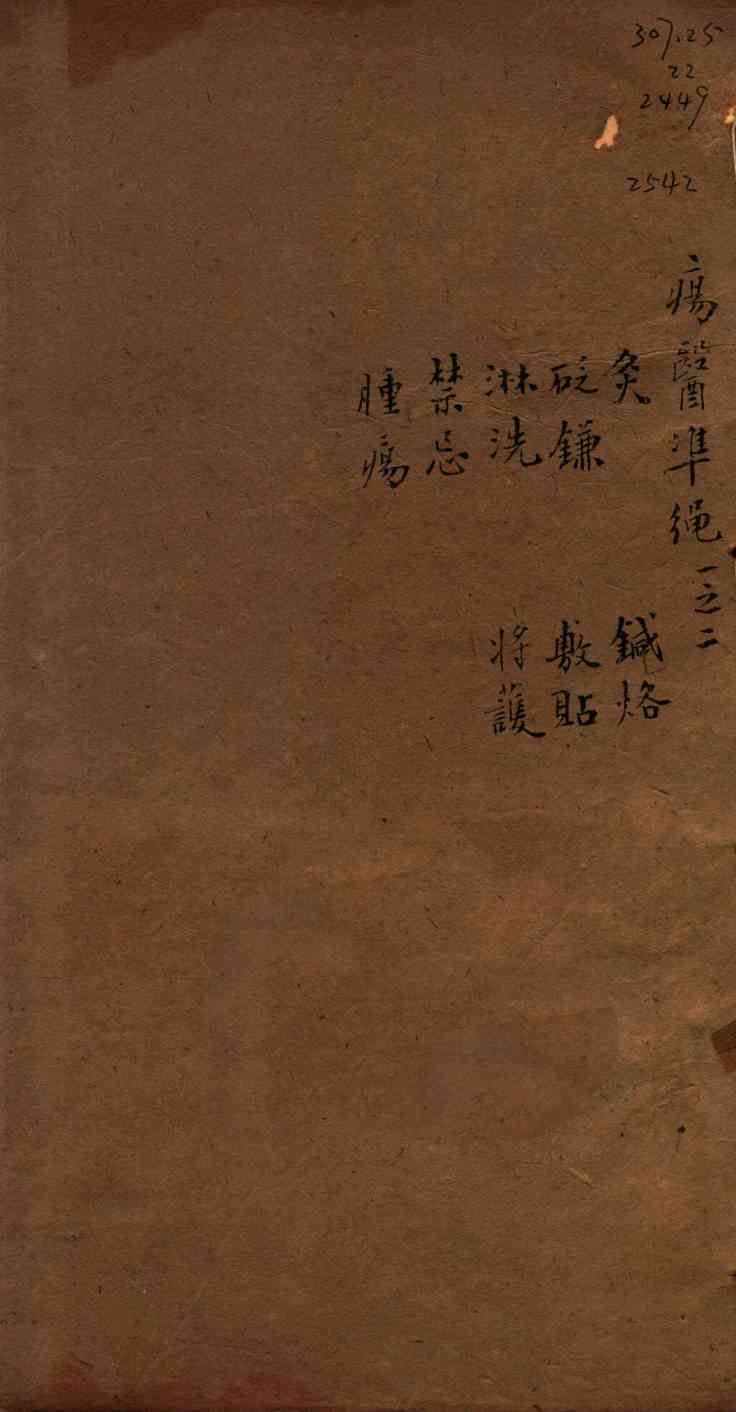 307.25
22
2449
2542
瘍醫準繩一之二
灸 鍼烙
砭鎌 敷貼
淋洗 将護
禁忌
腫瘍